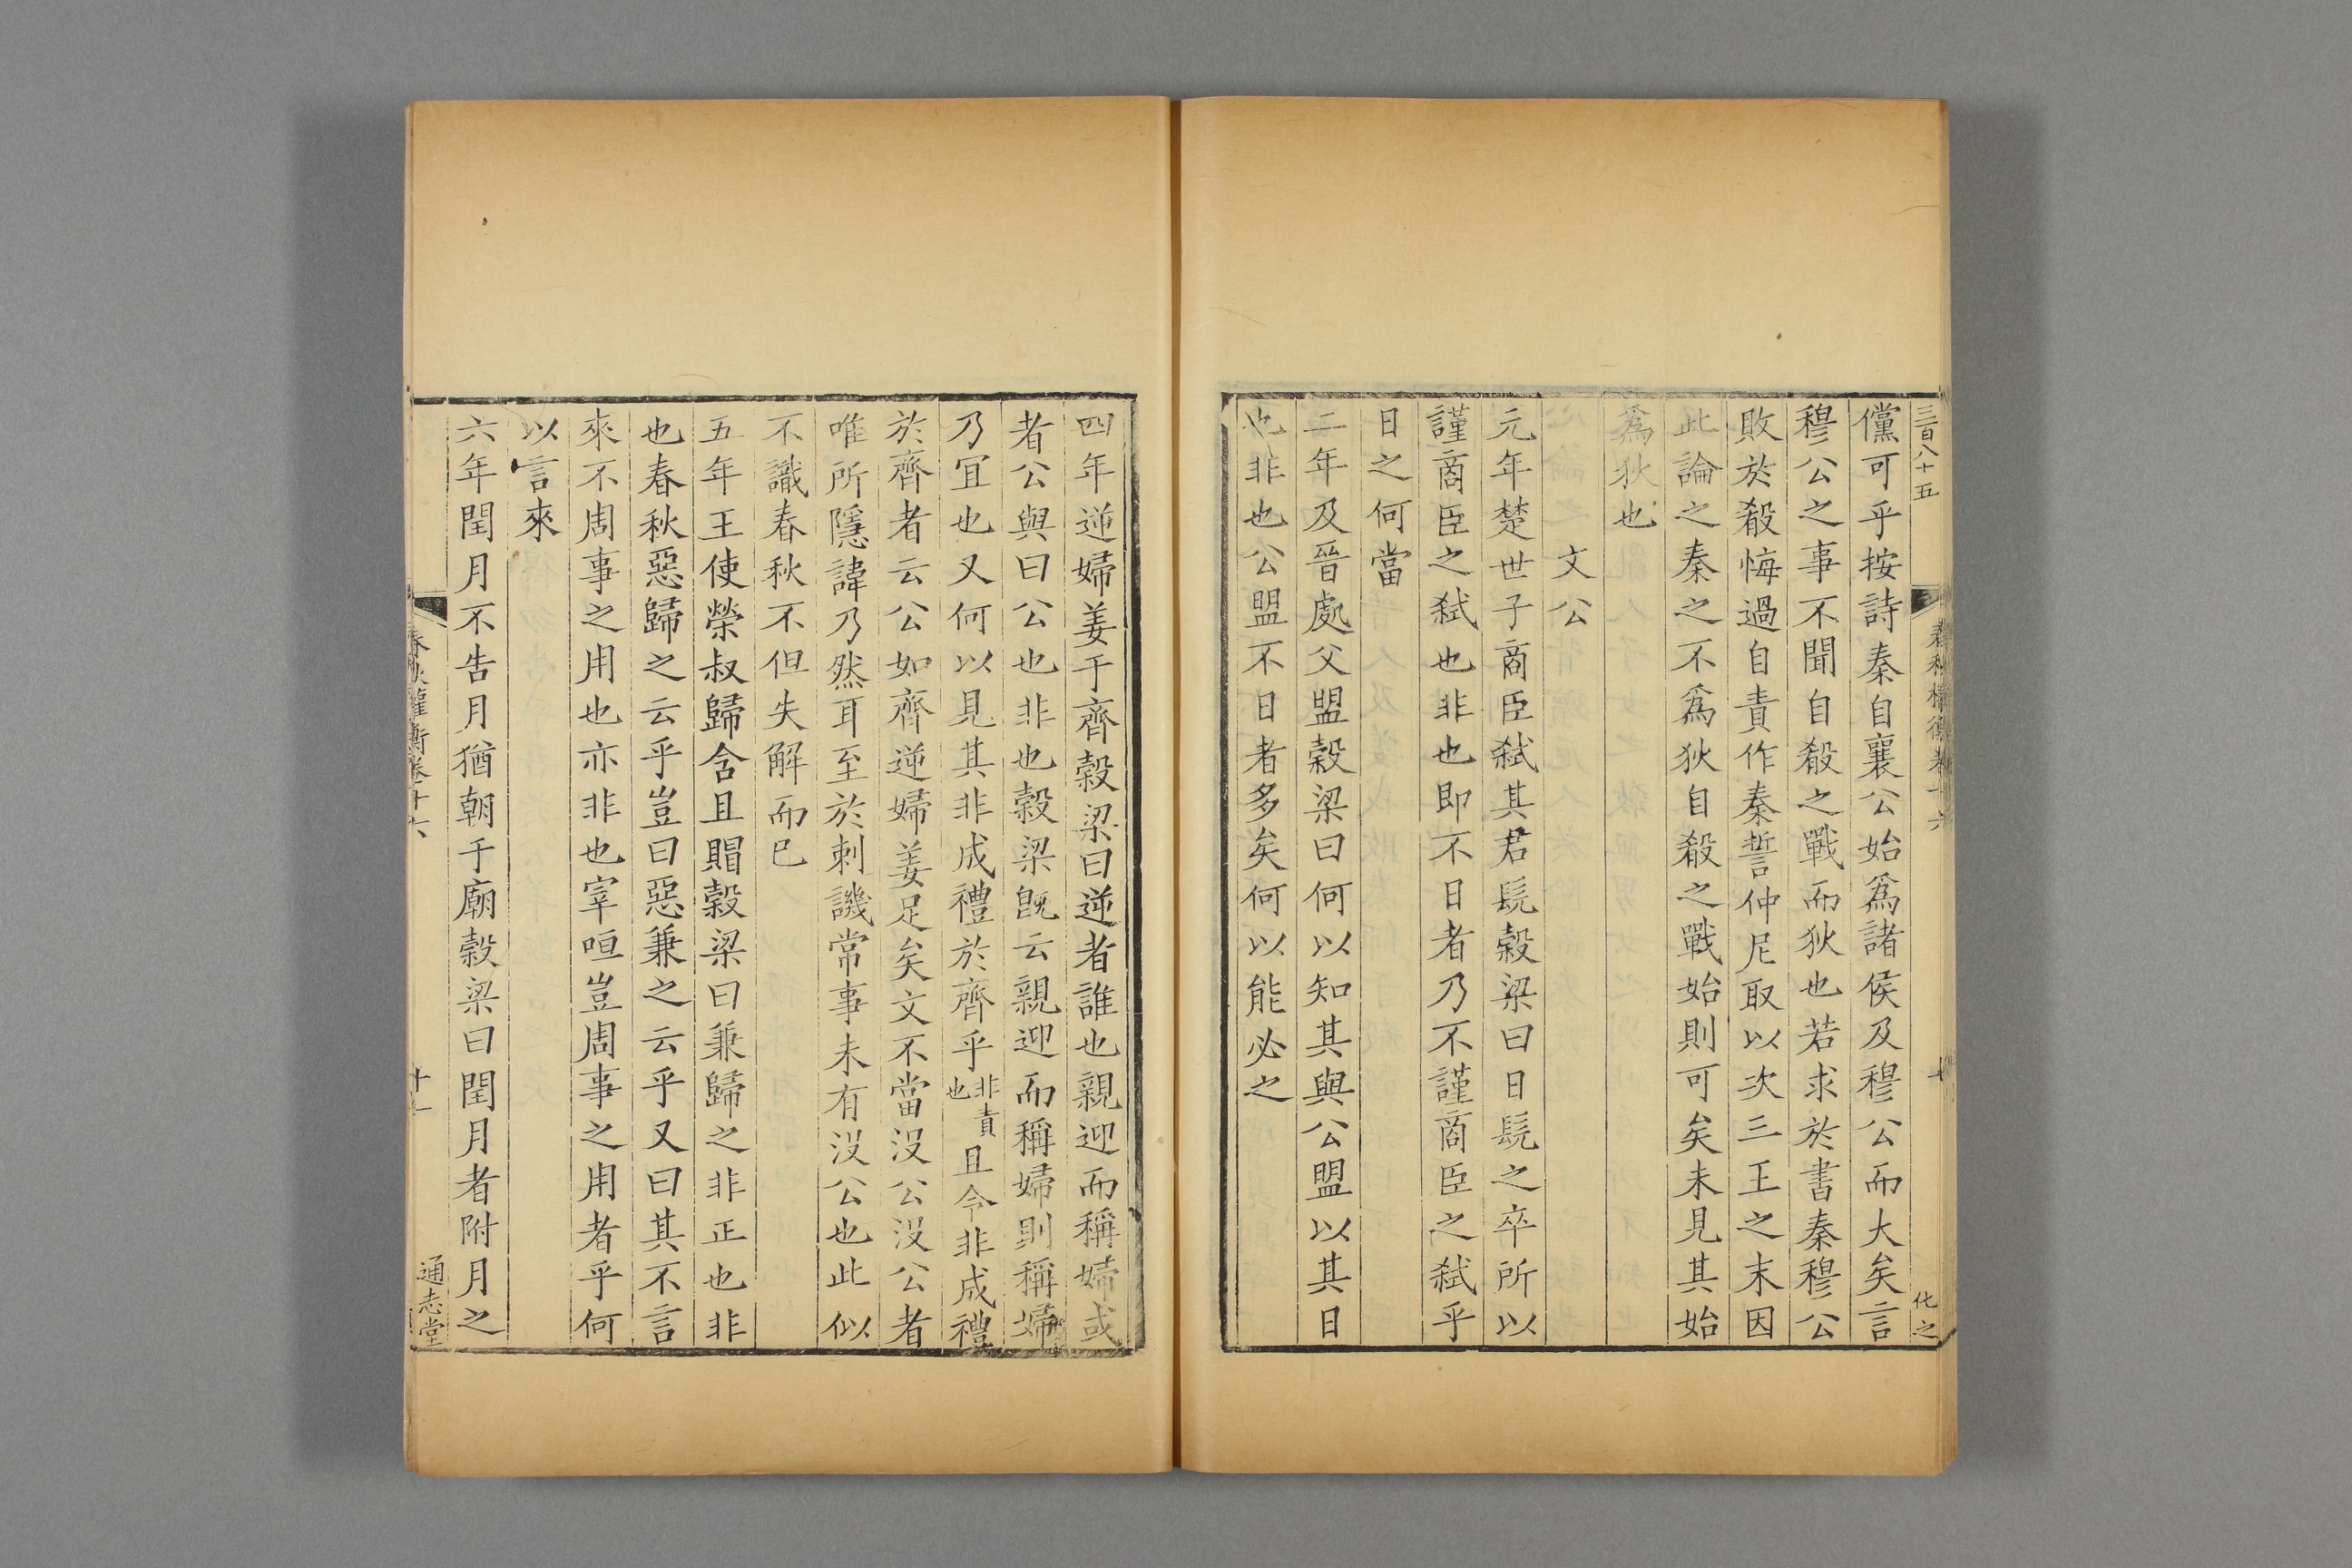 三百八十五
儻可乎按詩秦自襄公始爲諸侯及穆公而大矣言
穆公之事不聞自殽之戰而狄也若求於書秦穆公
敗於殽悔過自責作秦誓仲尼取以次三王之末因
此論之秦之不爲狄自殽之戰始則可矣未見其始
爲狄也
文公
元年楚世子商臣弑其君髡穀梁曰日髡之卒所以
謹商臣之弑也非也即不日者乃不謹商臣之弑乎
日之何當
二年及晉處父盟穀梁曰何以知其與公盟以其日
也非也公盟不日者多矣何以能必之
四年逆婦姜于齊穀梁曰逆者誰也親迎而稱婦或
者公與曰公也非也穀梁旣云親迎而稱婦則稱婦
乃宜也又何以見其非成禮於齊乎非責也且令非成禮
於齊者云公如齊逆婦姜足矣文不當沒公沒公者
唯所隱諱乃然耳至於刺譏常事未有沒公也此似
不識春秋不但失解而已
五年王使榮叔歸含且賵穀梁曰兼歸之非正也非
也春秋惡歸之云乎豈曰惡兼之云乎又曰其不言
來不周事之用也亦非也宰咺豈周事之用者乎何
以言來
六年閏月不告月猶朝于廟穀梁曰閏月者附月之
春秋權衡卷十六
十一
通志堂